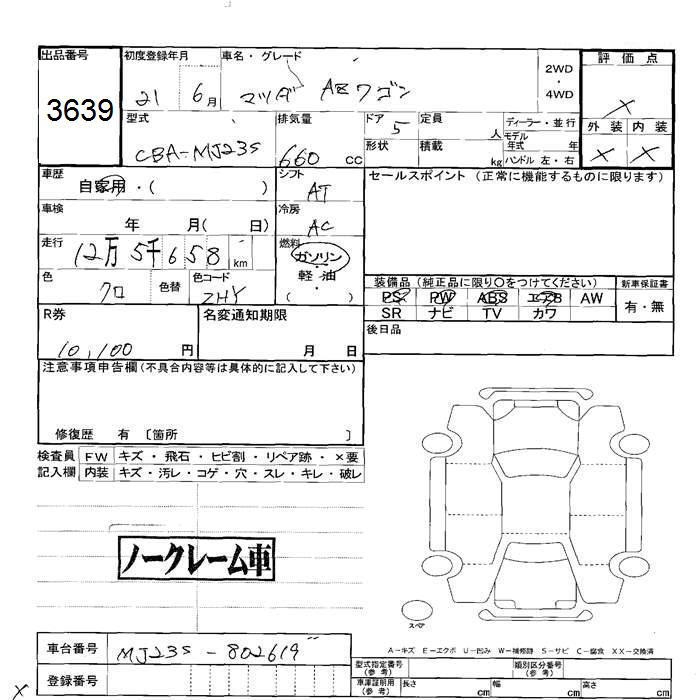 出品番号
3639
初度登録年月
21 6月
車名・グレード
マツダ AZワゴン
2WD
・
4WD
評価点
X
外装 内装
X X
型式
CBA-MJ23S
排気量
660 cc
ドア 5
定員 人
形状
積載 kg
ディーラー・並行
モデル年式 年
ハンドル 左・右
車歴
自家用・( )
シフト
AT
セールスポイント (正常に機能するものに限ります)
車検
年 月( 日)
冷房
AC
走行
12万5千658 km
燃料
ガソリン
・・
軽油
( )
色
クロ
色替
色コード
ZHY
装備品 (純正品に限り○をつけてください)
新車保証書
PS PW ABS エアB AW
有・無
SR ナビ TV カワ
R券
10,100 円
名変通知期限
月 日
後日品
注意事項申告欄(不具合内容等は具体的に記入して下さい)
修復歴 有 〔箇所 〕
検査員 FW キズ・飛石・ヒビ割・リペア跡・×要
記入欄 内装 キズ・汚レ・コゲ・穴・スレ・キレ・破レ
ノークレーム車
スペア
A-キズ E-エクボ U-凹み W-補修跡 S-サビ C-腐食 XX-交換済
車台番号
MJ23S - 802619
登録番号
X
型式指定番号
(参考)
類別区分番号
(参考)
車庫証明用
(参考)
長さ cm 幅 cm 高さ cm